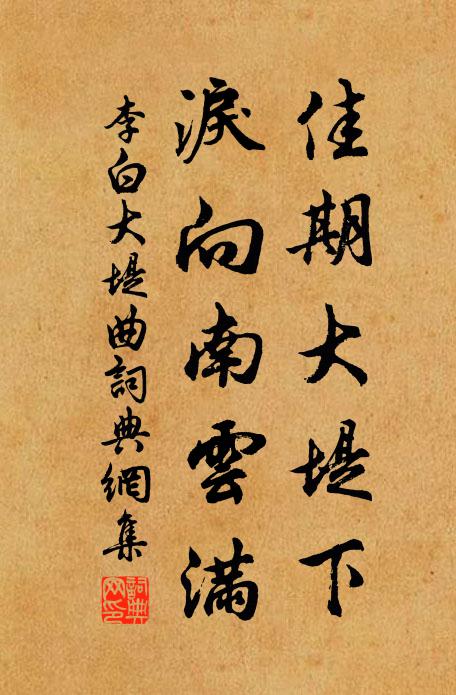 佳期大堤下
淚向南雲滿
李白大堤曲詞典網集
詞典
网印